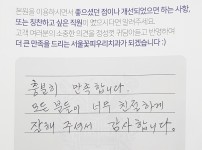 본원을 이용하시면서 좋으셨던 점이나 개선되었으면 하는 사항,
또는 칭찬하고 싶은 직원이 있으시다면 알려주세요.
고객 여러분의 소중한 의견을 정성껏 귀담아듣고 반영하여
더 큰 만족을 드리는 서울꽃피우리치과가 되겠습니다 :)
충분히 만족합니다.
모든 분들이 너무 친절하게
잘해 주셔서 감사합니다.